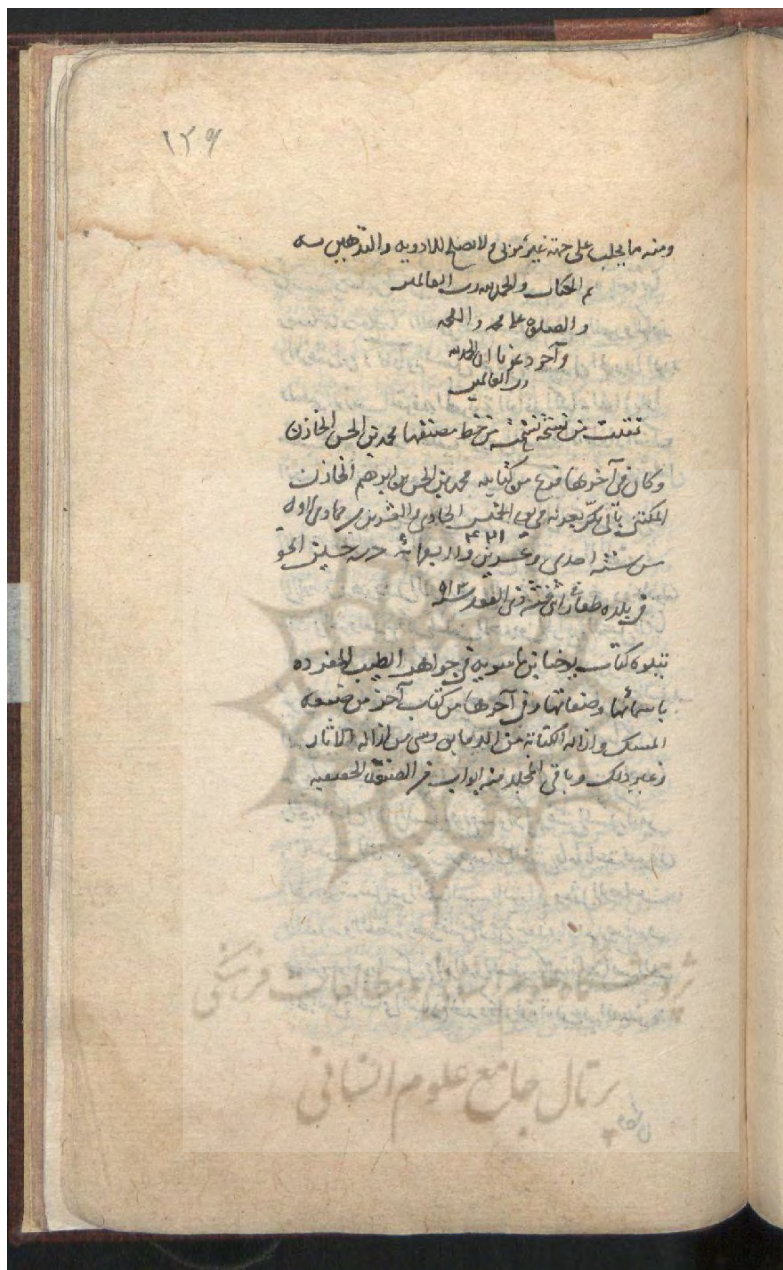 ١٢٩
ومنه ما يجلب على جهة غير مربى ولا يصلح للادويه والتدهين به
تم الكتاب والحمد لله رب العالمين
والصلوة على محمد وال محمد
وآخر دعونا ان الحمد لله
رب العالمين
نقلت من نسخة نسخت من خط مصنفها محمد بن الحسن الخازن
وكان في آخرها فرغ من كتابه محمد بن الحسن بن ابرهيم الخازن
المكتنى بابى بكر يوم الخميس الحادى والعشرين من جمادى الاولى
٤٢١
من سنة احدى وعشرين واربعمائة
فى بلده ذى القعده سنة ٩١٣
يتلوه كتاب يوحنا بن ماسويه فى جواهر الطيب المفرده
باسمائها وصفاتها وفى آخرها من كتاب آخر من صنعة
المسك وازالة الكتابة من الدفاتر وشى من ازالة الاثار
وغير ذلك وباقى المجلد منه ابواب فى الصنعة
پژوهشگاه علوم انسانی و مطالعات فرهنگی
پرتال جامع علوم انسانی